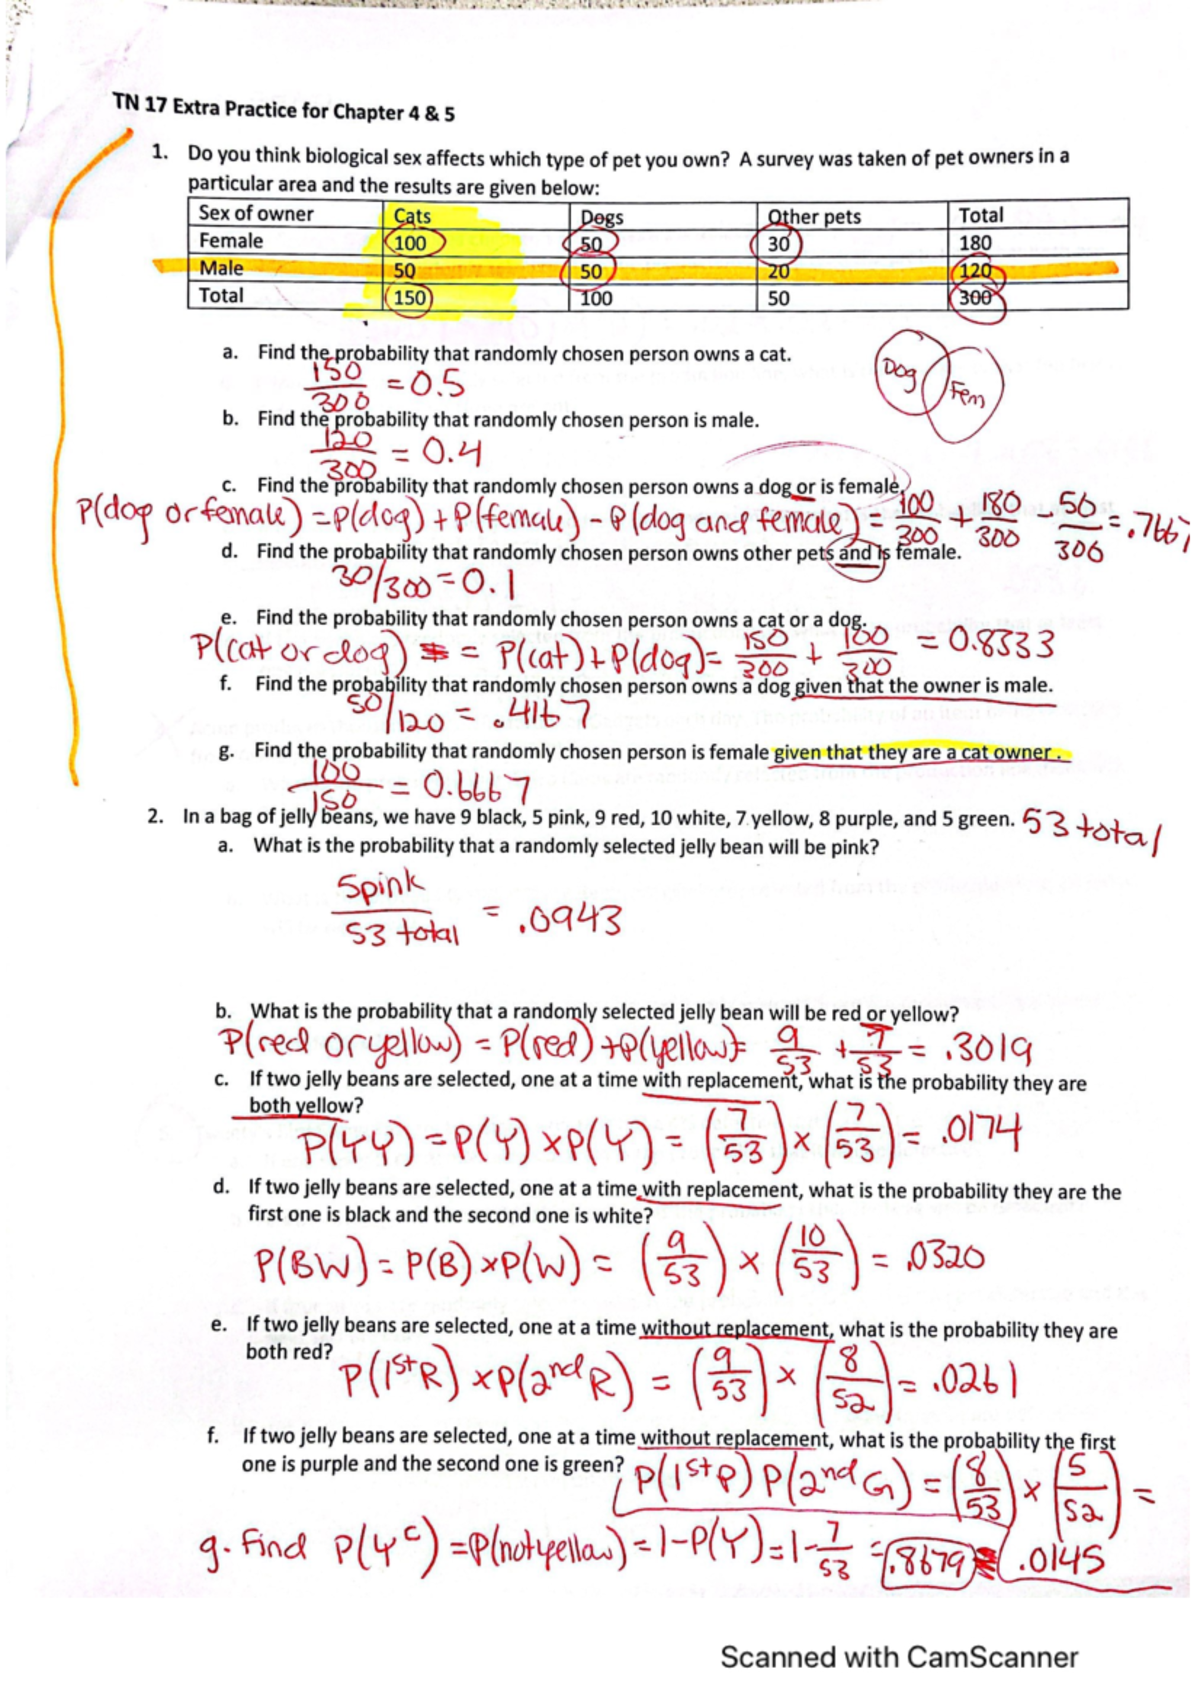 TN 17 Extra Practice for Chapter 4 & 5
1. Do you think biological sex affects which type of pet you own? A survey was taken of pet owners in a
particular area and the results are given below:
Sex of owner Cats Dogs Other pets Total
Female 100 50 30 180
Male 50 50 20 120
Total 150 100 50 300
a. Find the probability that randomly chosen person owns a cat.
150/300 = 0.5
Dog Fem
b. Find the probability that randomly chosen person is male.
120/300 = 0.4
c. Find the probability that randomly chosen person owns a dog or is female.
P(dog or female) = P(dog) + P(female) - P(dog and female) = 100/300 + 180/300 - 50/300 = .7667
d. Find the probability that randomly chosen person owns other pets and is female.
30/300 = 0.1
e. Find the probability that randomly chosen person owns a cat or a dog.
P(cat or dog) = P(cat) + P(dog) = 150/300 + 100/300 = 0.8333
f. Find the probability that randomly chosen person owns a dog given that the owner is male.
50/120 = .4167
g. Find the probability that randomly chosen person is female given that they are a cat owner.
100/150 = 0.6667
2. In a bag of jelly beans, we have 9 black, 5 pink, 9 red, 10 white, 7 yellow, 8 purple, and 5 green. 53 total
a. What is the probability that a randomly selected jelly bean will be pink?
5 pink/53 total = .0943
b. What is the probability that a randomly selected jelly bean will be red or yellow?
P(red or yellow) = P(red) + P(yellow) = 9/53 + 7/53 = .3019
c. If two jelly beans are selected, one at a time with replacement, what is the probability they are
both yellow?
P(YY) = P(Y) x P(Y) = (7/53) x (7/53) = .0174
d. If two jelly beans are selected, one at a time with replacement, what is the probability they are the
first one is black and the second one is white?
P(BW) = P(B) x P(W) = (9/53) x (10/53) = .0320
e. If two jelly beans are selected, one at a time without replacement, what is the probability they are
both red?
P(1st R) x P(2nd R) = (9/53) x (8/52) = .0261
f. If two jelly beans are selected, one at a time without replacement, what is the probability the first
one is purple and the second one is green?
P(1st P) P(2nd G) = (8/53) x (5/52) =
.0145
g. Find P(Y^c) = P(not yellow) = 1 - P(Y) = 1 - 7/53 = .8679
Scanned with CamScanner